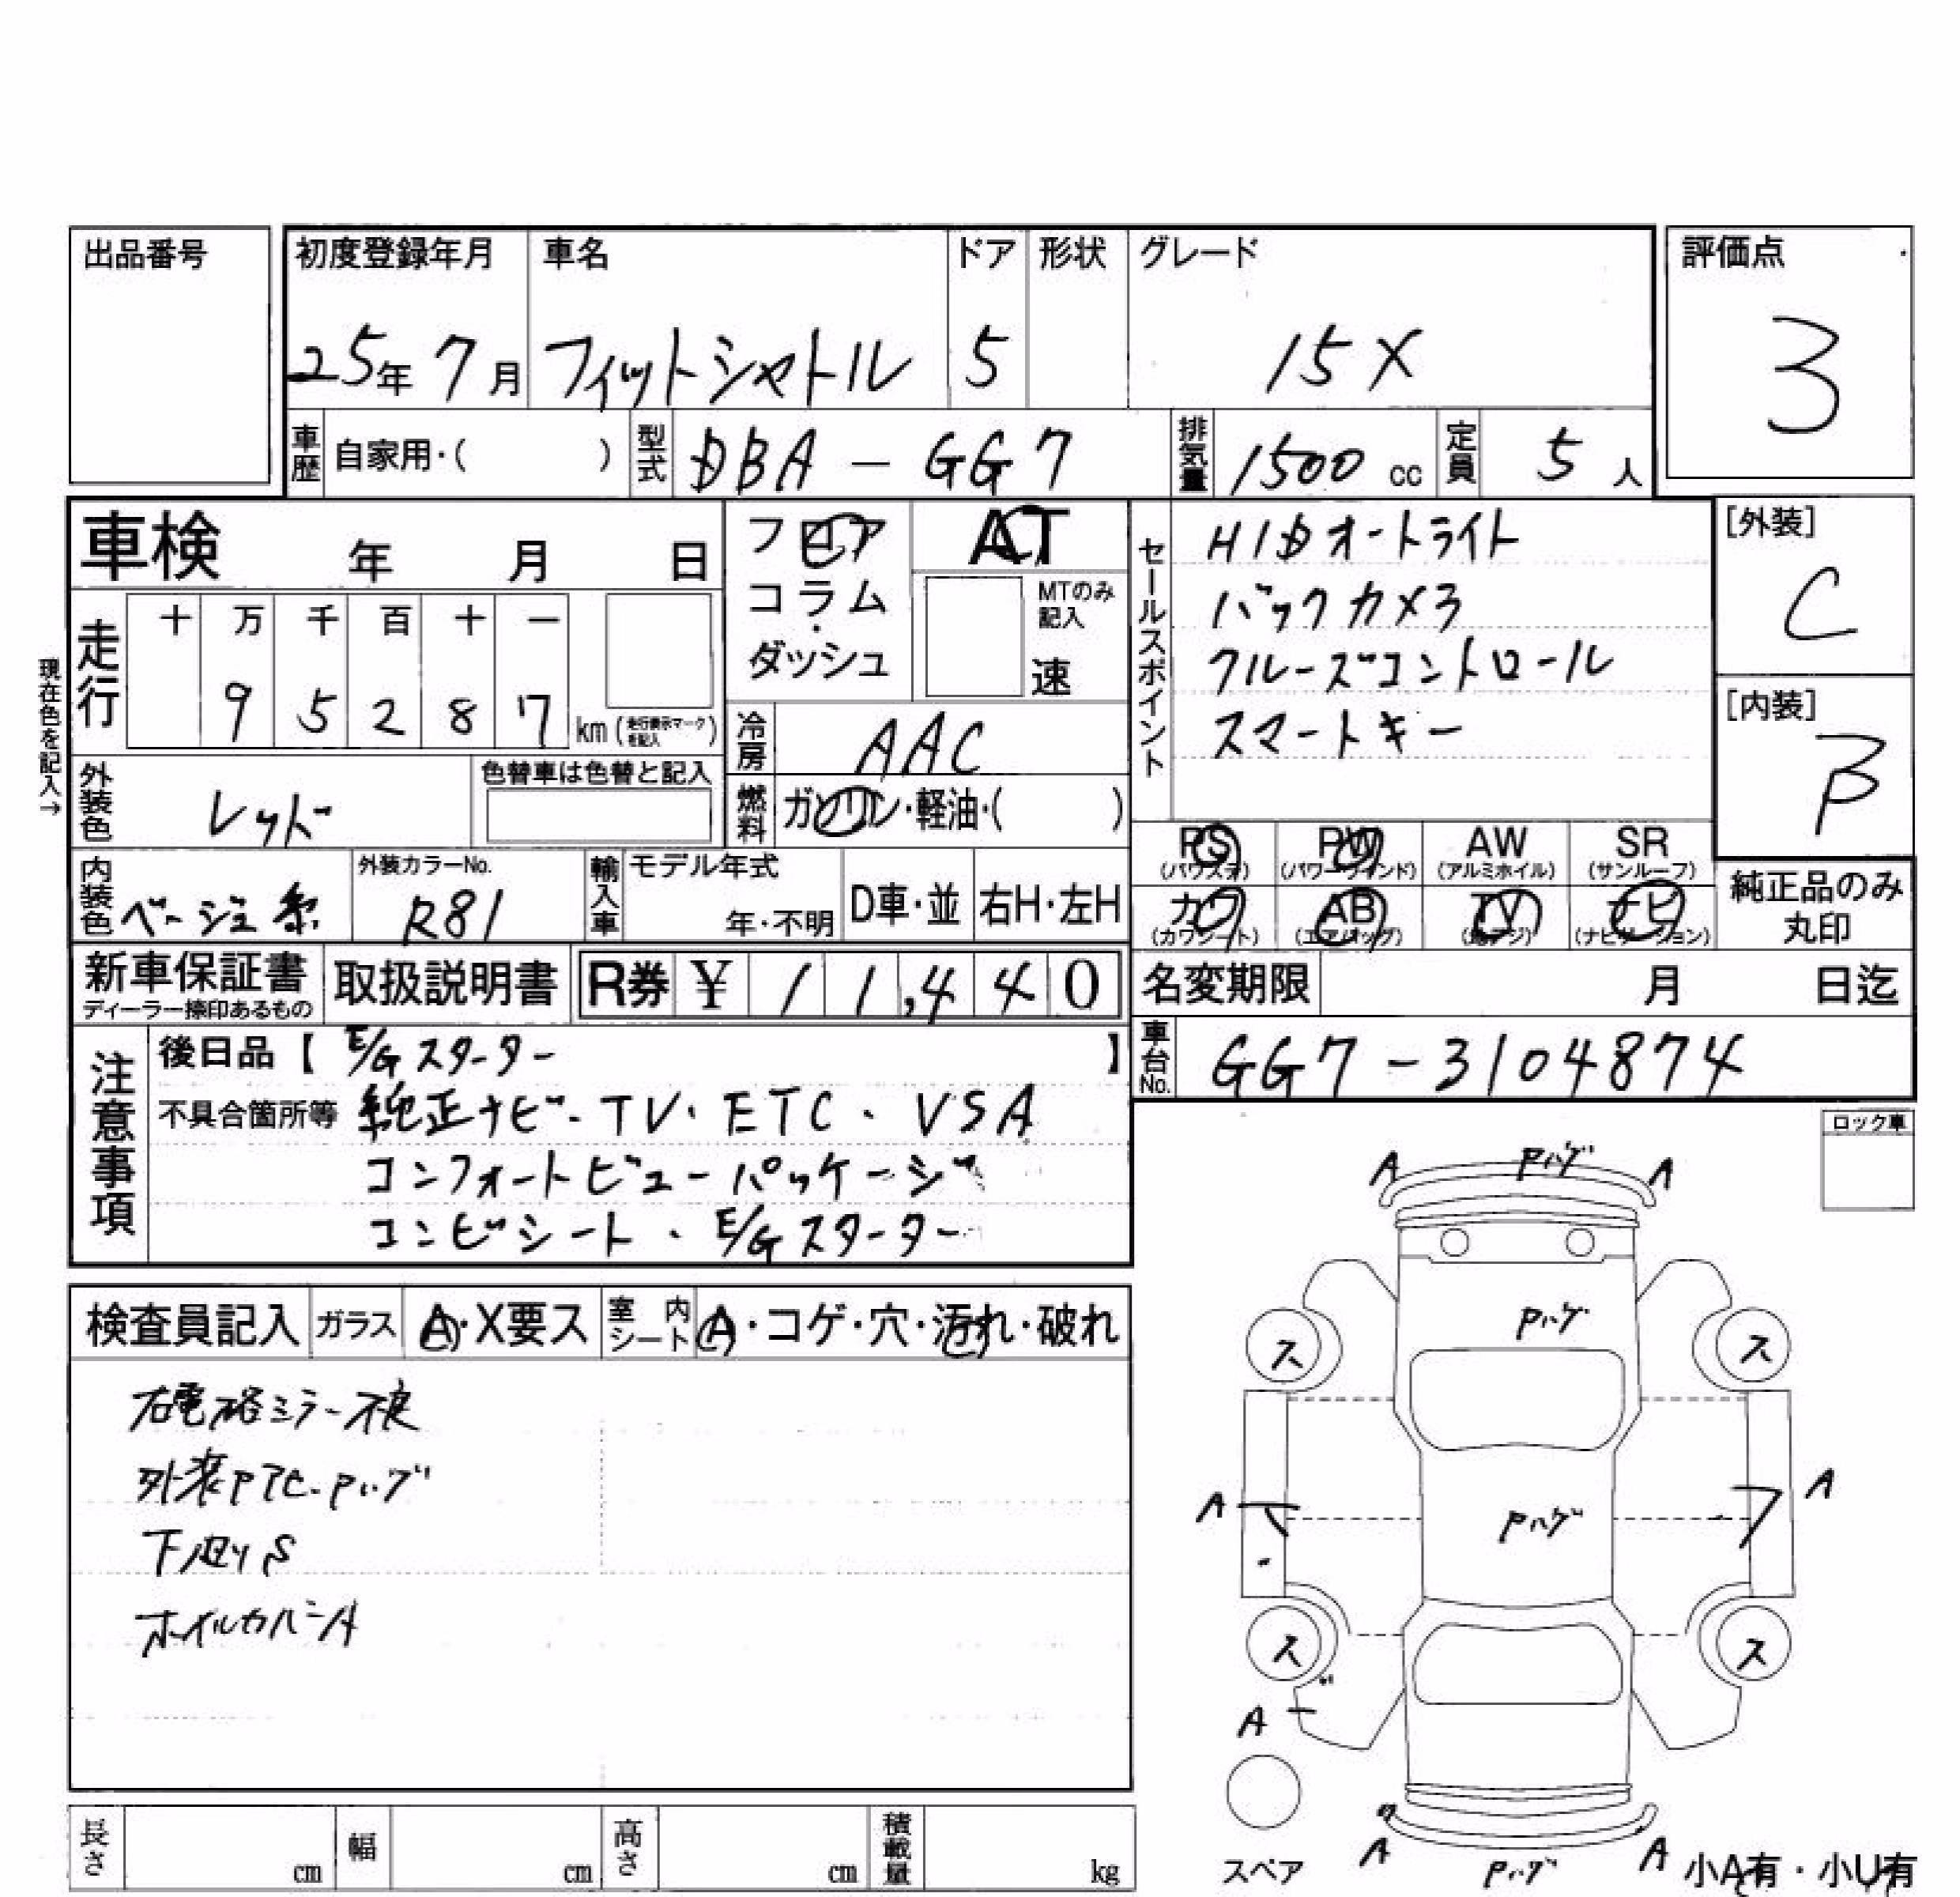 出品番号
初度登録年月 車名 ドア 形状 グレード 評価点
25年 7月 フィットシャトル 5 15X 3
車歴 自家用・( ) 型式 DBA - GG7 排気量 1500 cc 定員 5 人
車検 年 月 日
フロア
コラム
・
ダッシュ
AT
MTのみ
記入
速
セールスポイント
HIDオートライト
バックカメラ
クルーズコントロール
スマートキー
[外装]
C
[内装]
B
現在色を記入→
走行 十 万 千 百 十 一
9 5 2 8 7 km (走行表示マークを記入)
冷房 AAC
外装色 レッド 色替車は色替と記入
燃料 ガソリン・軽油・( )
PS PW AW SR
(パワステ) (パワーウインド) (アルミホイル) (サンルーフ)
カワ AB TV ナビ
(カワシート) (エアバッグ) (地デジ) (ナビゲーション)
純正品のみ
丸印
内装色 ベージュ系 外装カラーNo. R81 輸入車 モデル年式 年・不明 D車・並 右H・左H
新車保証書 取扱説明書 R券 ¥ 11,440
ディーラー捺印あるもの
名変期限 月 日迄
車台No. GG7-3104874
注意事項
後日品【 E/Gスターター 】
不具合箇所等 純正ナビ・TV・ETC・VSA
コンフォートビューパッケージ
コンビシート・E/Gスターター
ロック車
検査員記入 ガラス A・X要ス 室内シート A・コゲ・穴・汚れ・破れ
右電格ミラー不良
外装PTC・Pハゲ
下廻りS
ホイルカバーA
A Pハゲ A
Pハゲ
ス ス
A Pハゲ A
ス ス
A
スペア
A Pハゲ A
小A有・小U有
長さ cm 幅 cm 高さ cm 積載量 kg